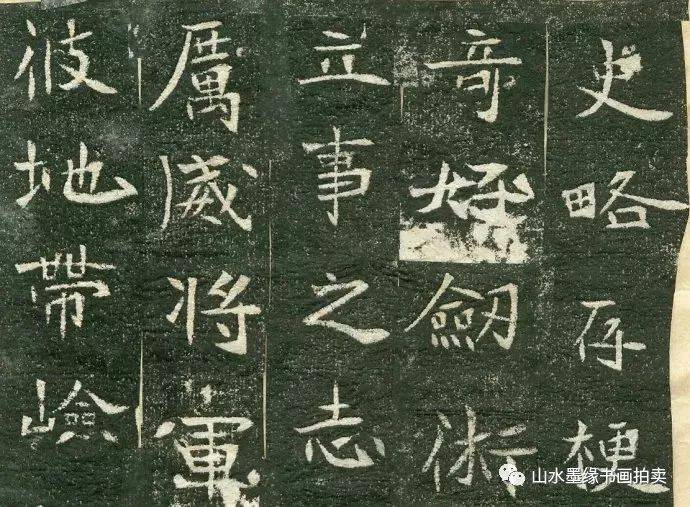 史略存梗
竒好劒術
立事之志
厲威將軍
彼地帶嶮
山水墨缘书画拍卖